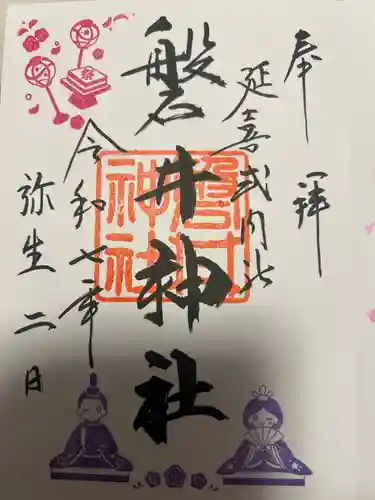 奉拝
延喜式内社
磐井神社
磐井神社
令和七年
弥生二日
祭